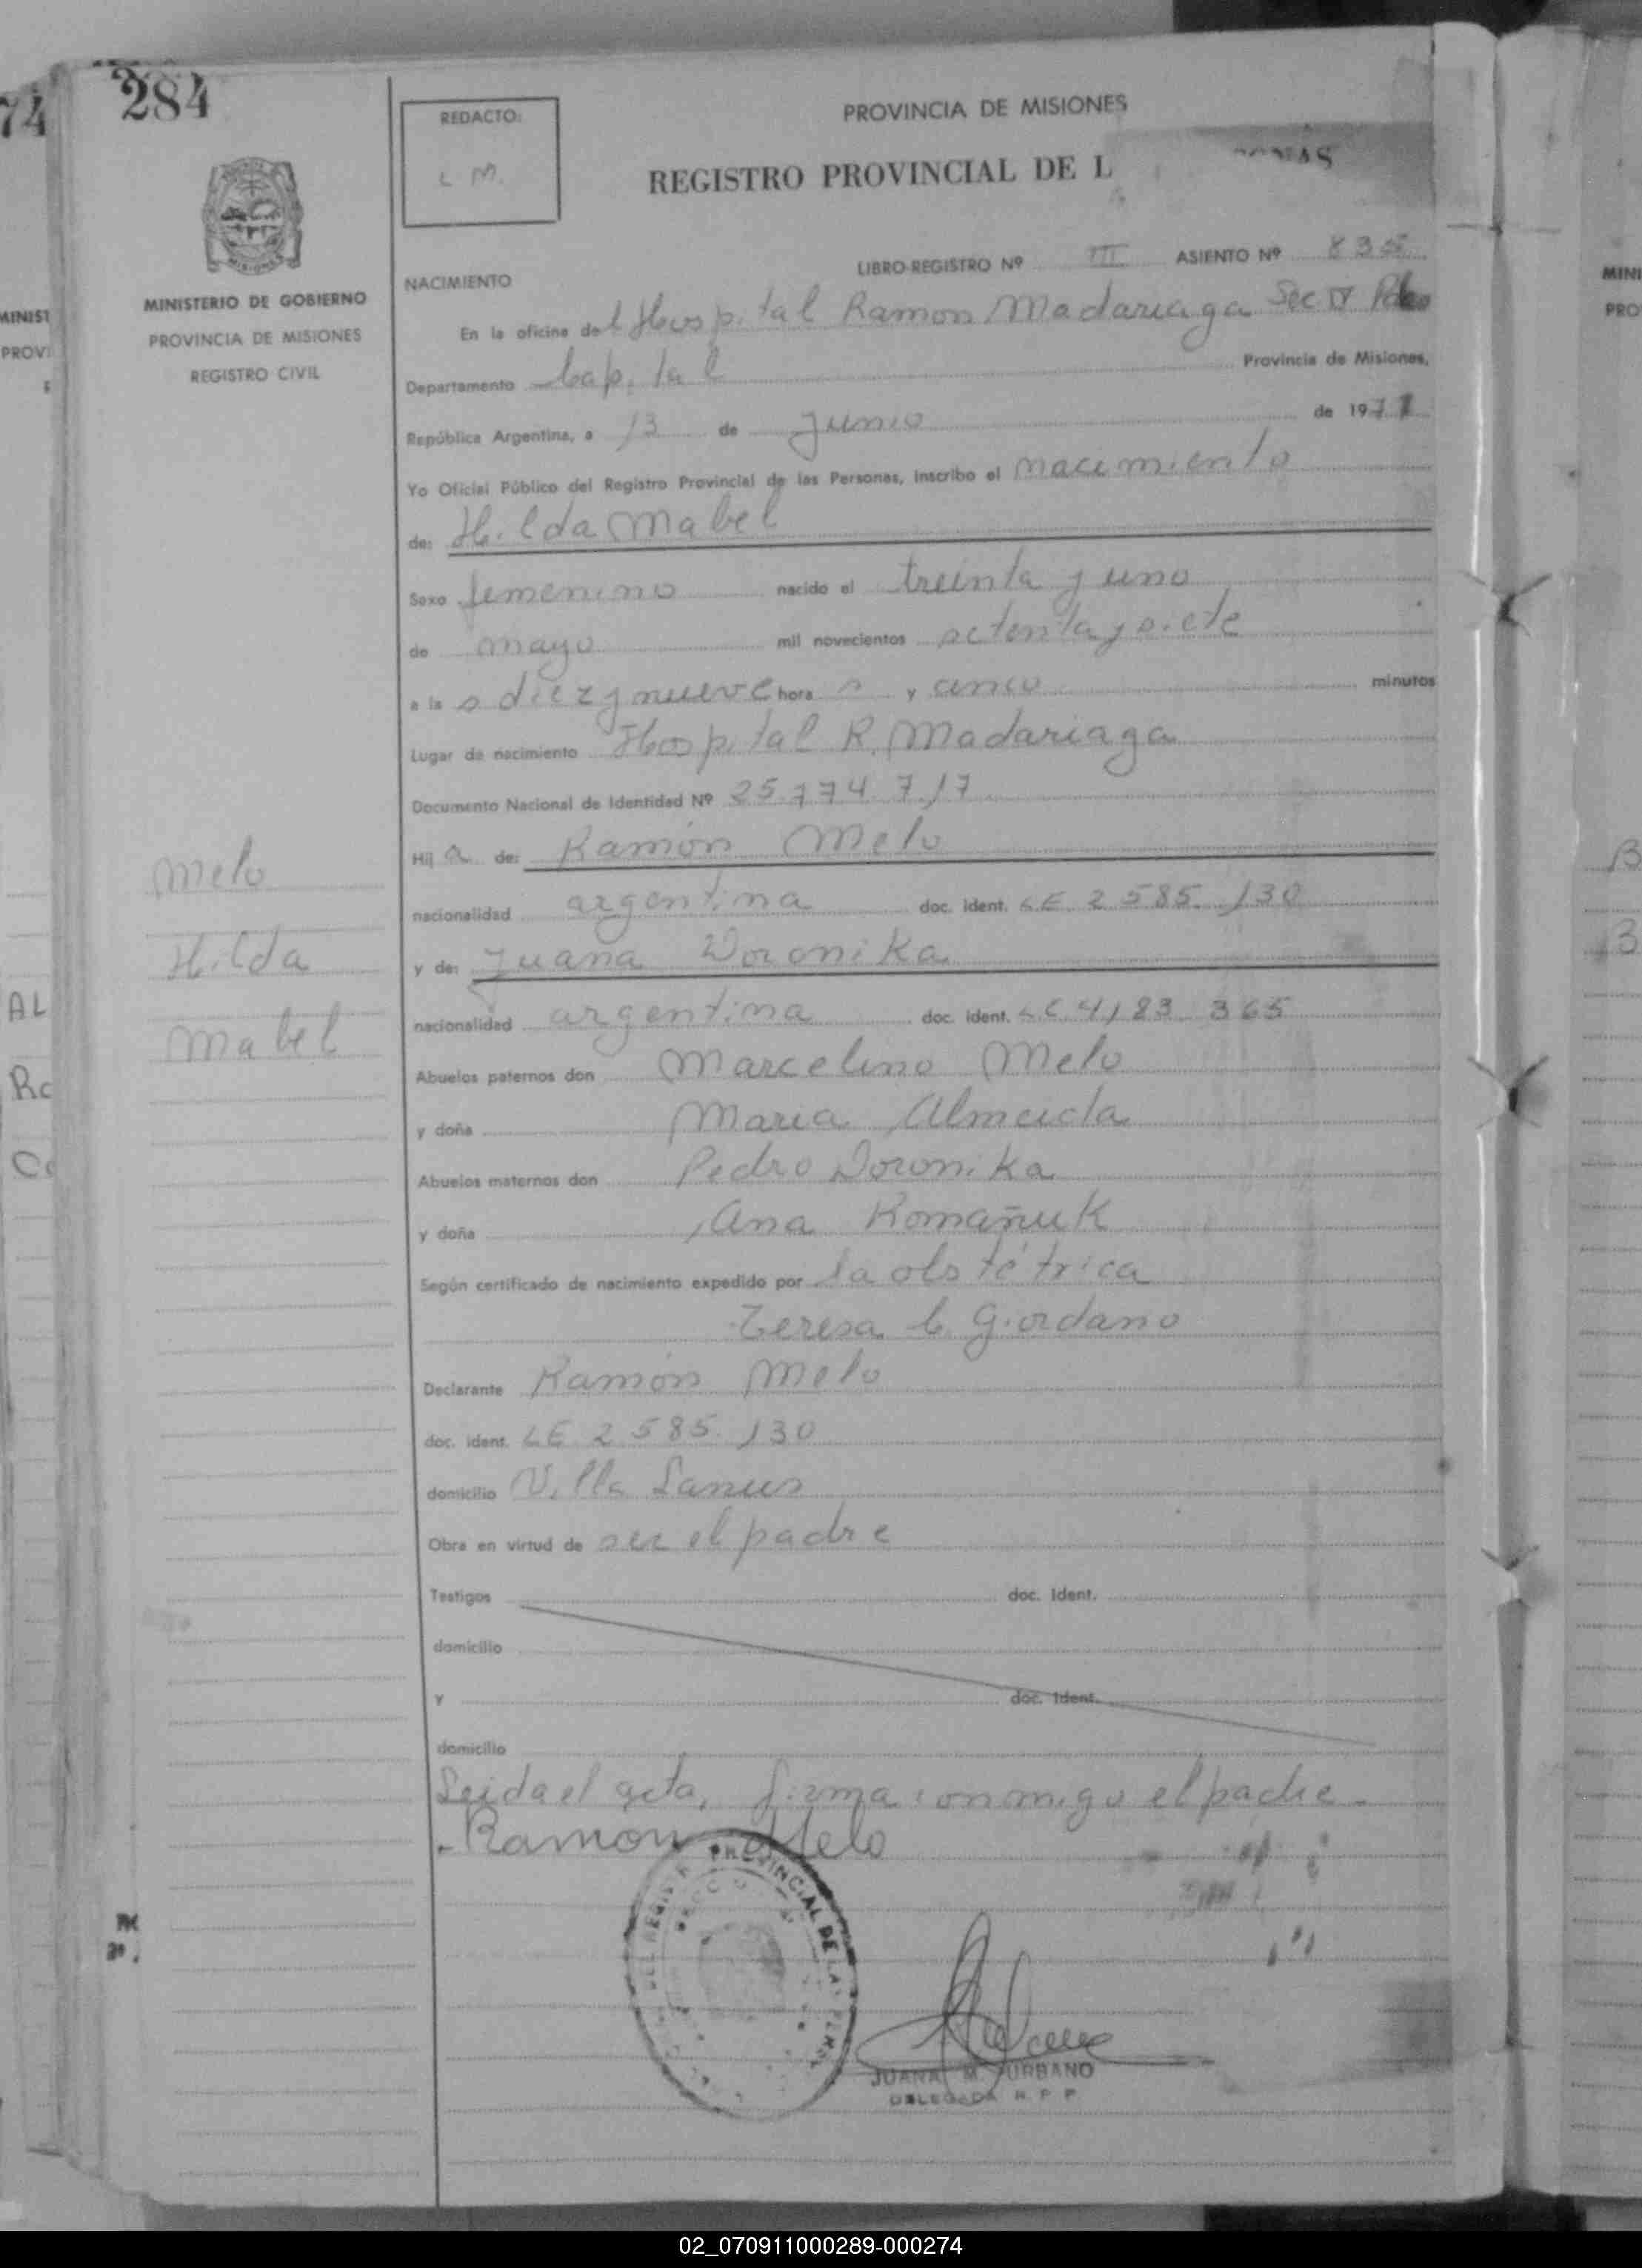 284
74
REDACTO:
L M.
PROVINCIA DE MISIONES
REGISTRO PROVINCIAL DE L
MINISTERIO DE GOBIERNO
PROVINCIA DE MISIONES
REGISTRO CIVIL
LIBRO-REGISTRO Nº III ASIENTO Nº 835
NACIMIENTO
En la oficina del Hospital Ramon Madariaga Sec. IV
Departamento Capital Provincia de Misiones,
República Argentina, a 13 de junio de 1977
Yo Oficial Público del Registro Provincial de las Personas, inscribo el nacimiento
de: Hilda Mabel
Sexo femenino nacido el treinta y uno
de mayo mil novecientos setenta y siete
a la s diez y nueve hora s y cinco minutos
Lugar de nacimiento Hospital R. Madariaga
Documento Nacional de Identidad Nº 25.774.717
Hij a de: Ramón Melo
nacionalidad argentina doc. ident. LE 2 585. 130
y de: Juana Woronika
nacionalidad argentina doc. ident. LC 4183 365
Abuelos paternos don Marcelino Melo
y doña Maria Almeida
Abuelos maternos don Pedro Doronika
y doña Ana Romañuk
Según certificado de nacimiento expedido por la obstétrica
Teresa C. Giordano
Declarante Ramón Melo
doc. ident. LE 2 585. 130
domicilio Villa Lanus
Obra en virtud de ser el padre
Testigos doc. ident.
domicilio
y doc. ident.
domicilio
Leida el acta, firma conmigo el padre.
Ramon Melo
Melo
Hilda
Mabel
PROVINCIAL DE LAS
JUANA M. URBANO
DELEGADA R. P. P.
02_070911000289-000274